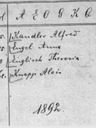 A E O G K G
Kandler Alfred
Engel Anna
Englisch Theresia
Knapp Alois
1892